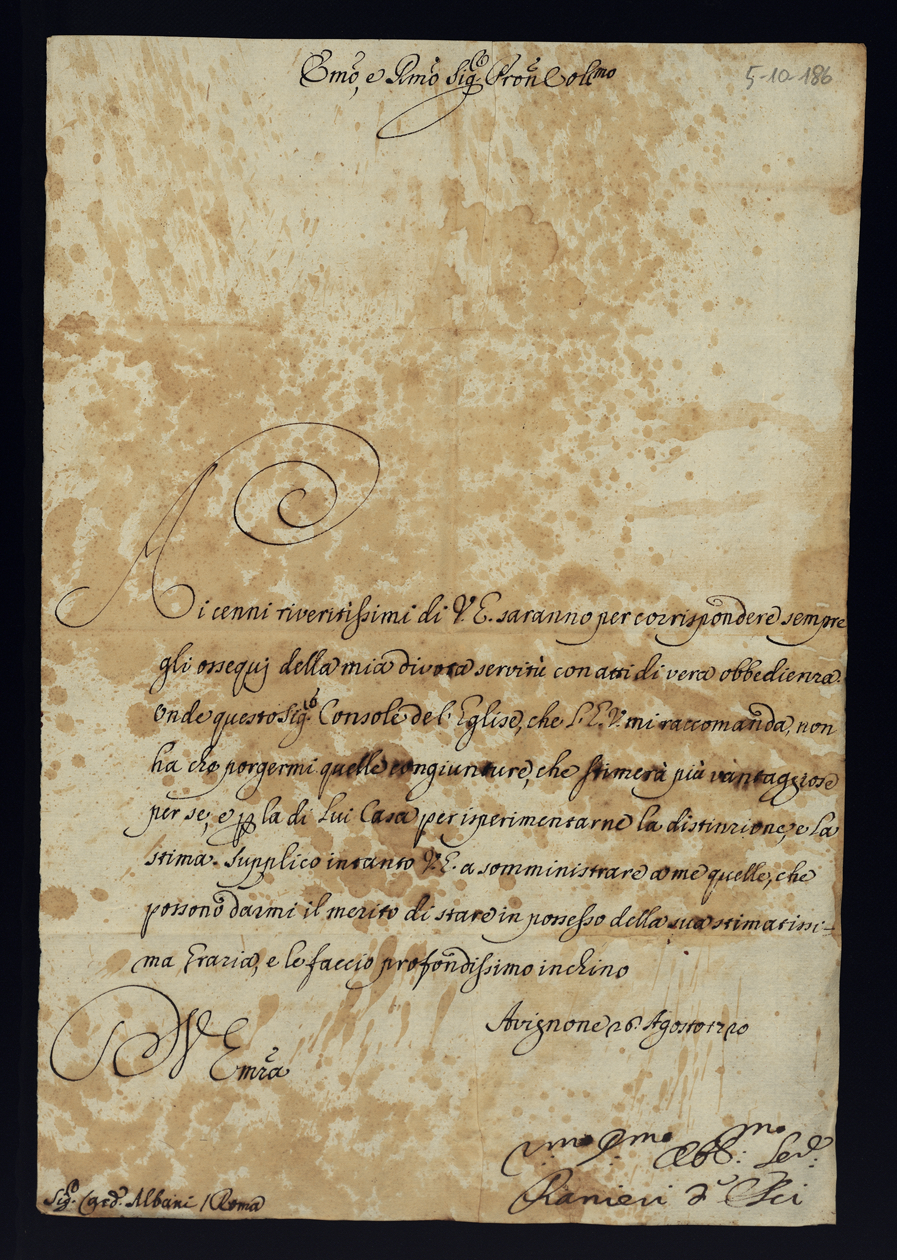 Emo, e Rmo Sig.re Pron Colmo
5-10-186
Ai cenni riveritissimi di V. E. saranno per corrispondere sempre
gli ossequj della mia divota servitù con atti di vera obbedienza.
Onde questo Sig.re Console de l'Eglise, che l'E. V. mi raccomanda, non
ha che porgermi quelle congiunture, che stimerà più vantaggiose
per se, e p la di lui Casa per isperimentarne la distinzione, e la
stima. Supplico intanto V. E. a somministrare a me quelle, che
possono darmi il merito di stare in possesso della sua stimatissi-
ma Grazia, e le faccio profondissimo inchino
Avignone 26. Agosto 1720
V Emza
Vmo Dmo Obb: mo Ser:
Ranieri d' Elci
Sig.re Card. Albani / Roma